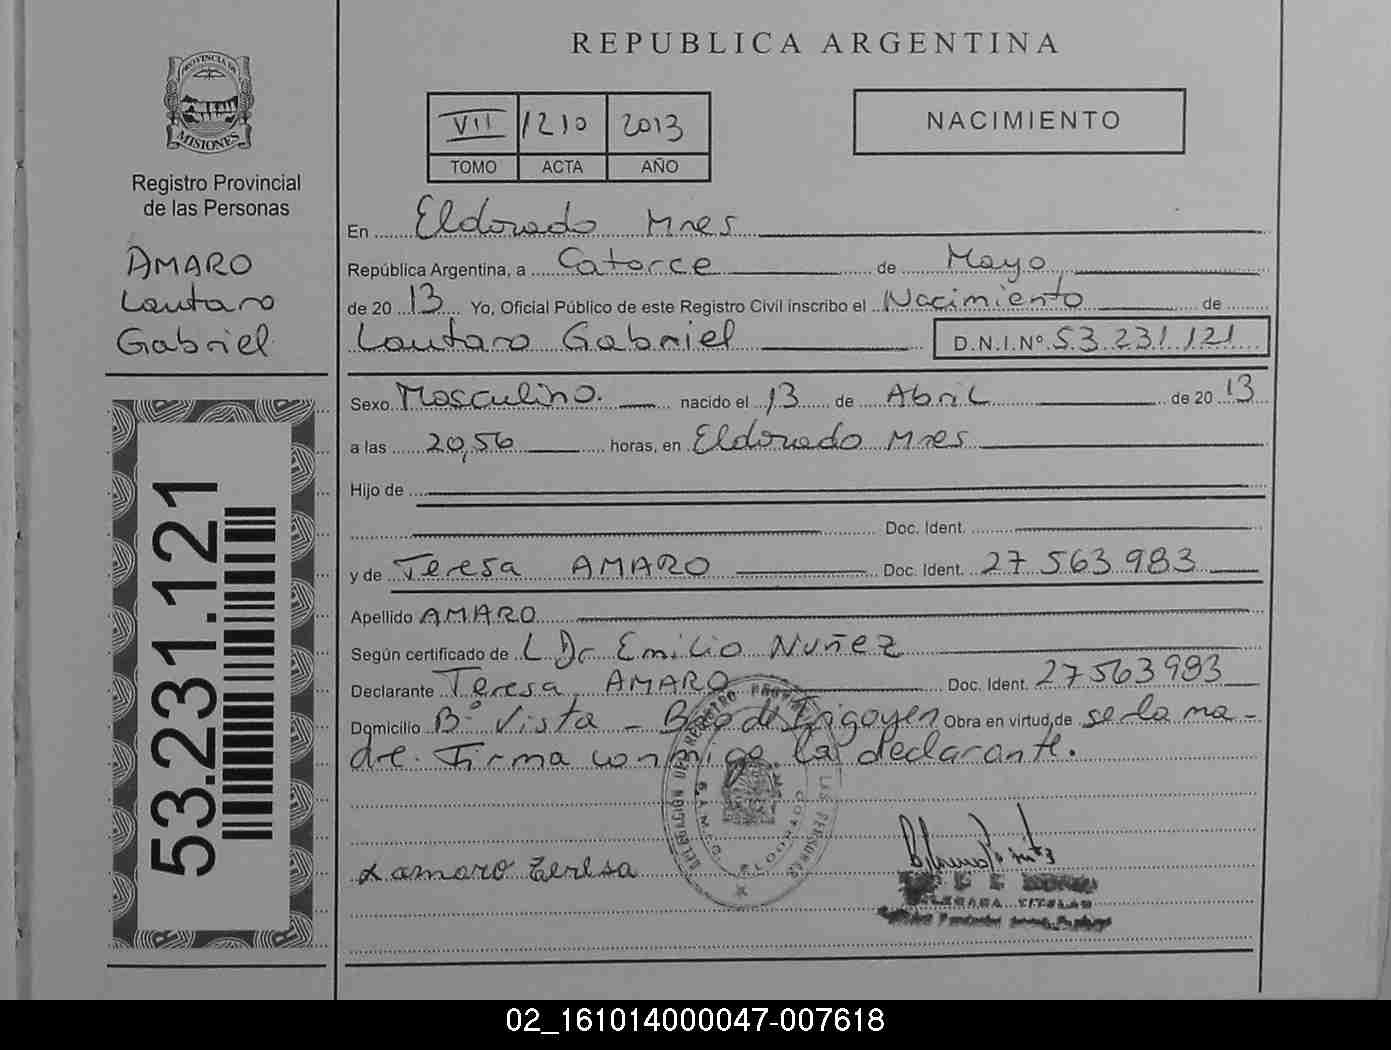 REPUBLICA ARGENTINA
PROVINCIA DE
MISIONES
Registro Provincial
de las Personas
VII 1210 2013
TOMO ACTA AÑO
NACIMIENTO
AMARO
Lautaro
Gabriel
53.231.121
En Eldorado Mnes
República Argentina, a Catorce de Mayo
de 20 13 Yo, Oficial Público de este Registro Civil inscribo el Nacimiento de
Lautaro Gabriel D.N.I.Nº 53.231.121
Sexo Masculino. nacido el 13 de Abril de 20 13
a las 20,56 horas, en Eldorado Mnes
Hijo de
Doc. Ident.
y de Teresa AMARO Doc. Ident. 27 563 983
Apellido AMARO
Según certificado de L Dr Emilio Nuñez
Declarante Teresa AMARO Doc. Ident. 27 563 983
Domicilio Bº Vista - Bdo de Irigoyen Obra en virtud de se la ma-
dre. Firma conmigo la declarante.
amaro Teresa
TITULAR
02_161014000047-007618